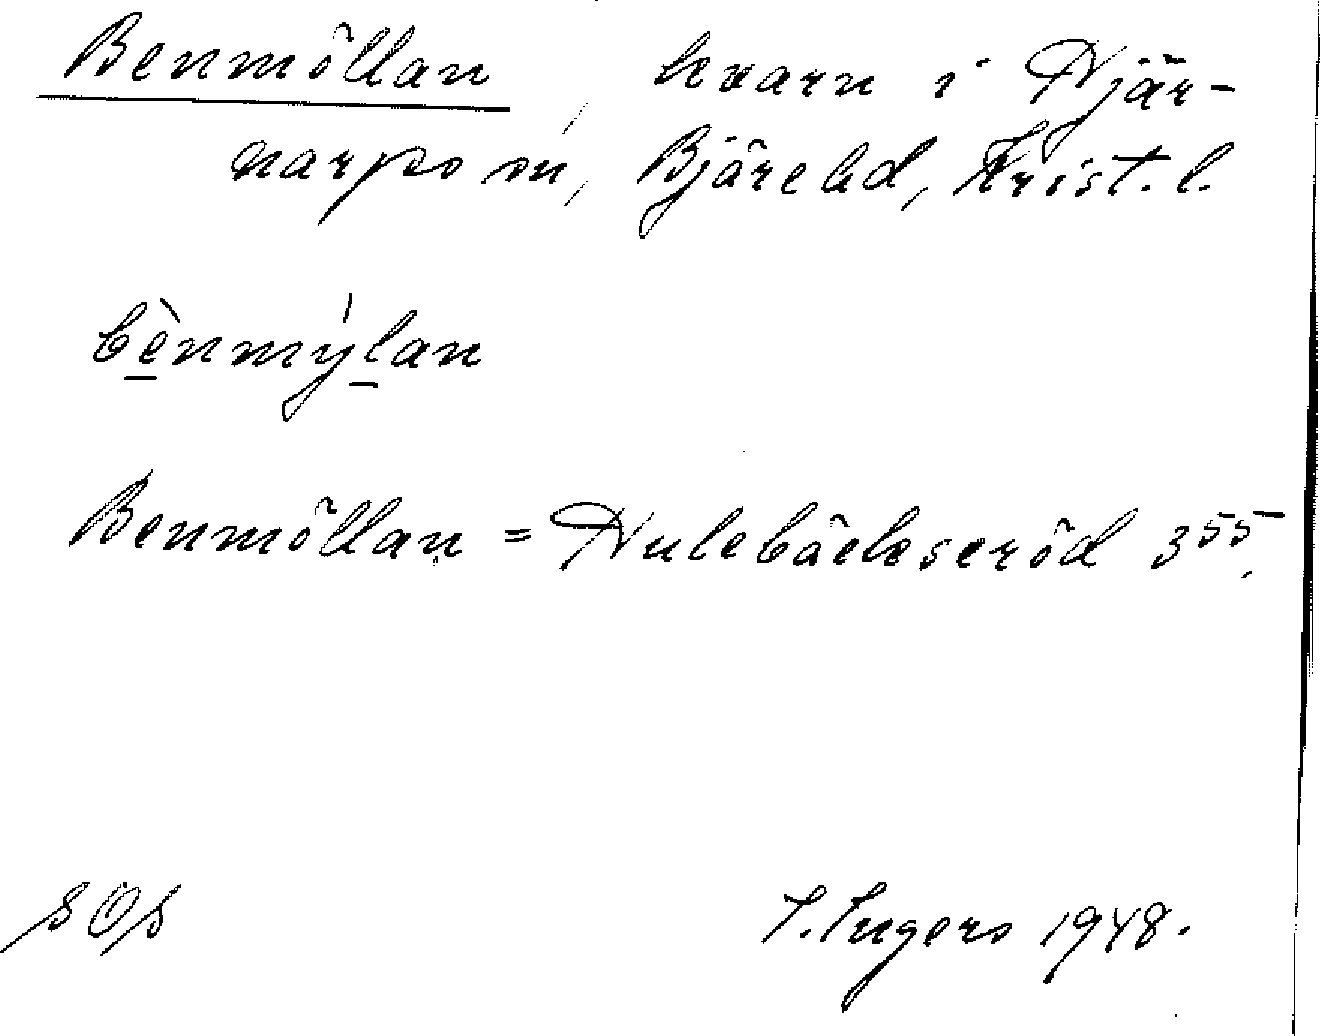 Benmöllan, kvarn i Njär-
narps sn, Bjäre hd, Krist. l.
bènmýlan
Benmöllan = Nulebäckseröd 3⁵⁵.
SOS
I. Ingers 1948.